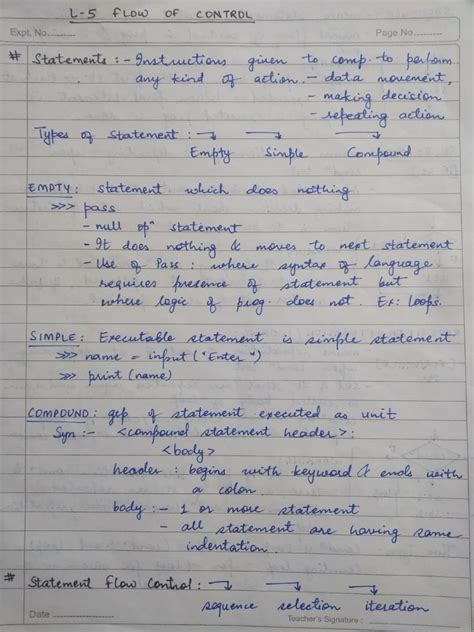 L-5 FLOW OF CONTROL
Expt. No. Page No.
# Statements :- Instructions given to comp. to perform
any kind of action. - data movement,
- making decision
- repeating action
Types of Statement :
Empty Simple Compound
EMPTY: Statement which does nothing
>>> pass
- null opⁿ statement
- It does nothing & moves to next statement
- Use of Pass : where syntax of language
requires presence of statement but
where logic of prog. does not. Ex: Loops.
SIMPLE: Executable statement is simple statement
>>> name = input ("Enter")
>>> print (name)
COMPOUND : grp of statement executed as unit
Syn :- <compound statement header>:
<body>
header : begins with keyword & ends with
a colon.
body :- 1 or more statement
- all statement are having same
indentation.
# Statement Flow Control :
sequence selection iteration
Date
Teacher's Signature :